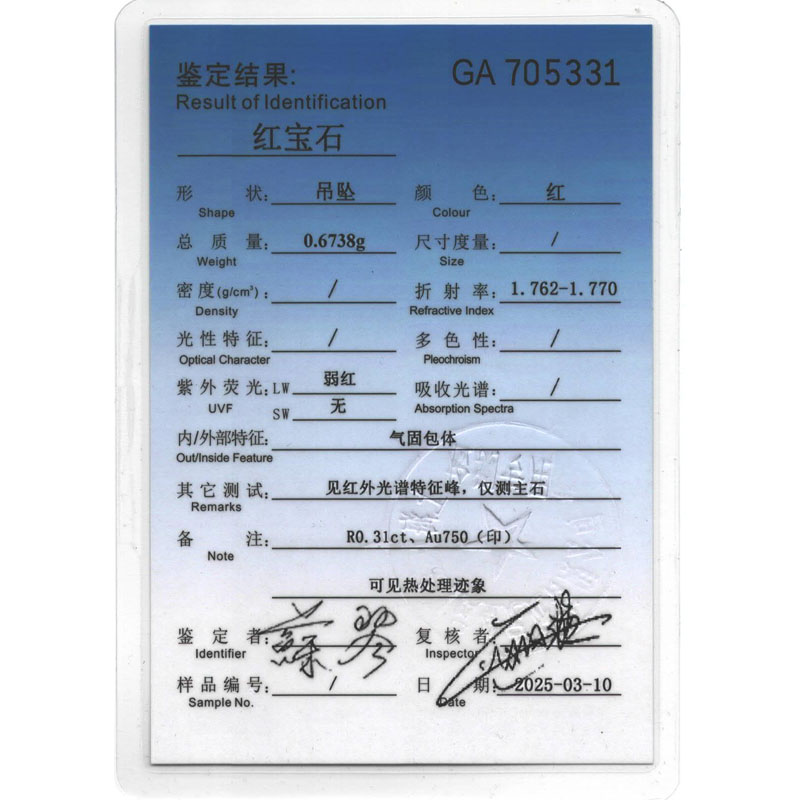 鉴定结果: GA 705331
Result of Identification
红宝石
形 状: 吊坠 颜 色: 红
Shape Colour
总 质 量: 0.6738g 尺寸度量: /
Weight Size
密度(g/cm³): / 折 射 率: 1.762-1.770
Density Refractive Index
光性特征: / 多 色 性: /
Optical Character Pleochroism
紫外荧光: LW 弱红 吸收光谱: /
UVF SW 无 Absorption Spectra
内/外部特征: 气固包体
Out/Inside Feature
其它测试: 见红外光谱特征峰，仅测主石
Remarks
备 注: R0.31ct、Au750（印）
Note
可见热处理迹象
鉴 定 者: 复 核 者:
Identifier Inspector
样品编号: / 日 期: 2025-03-10
Sample No. Date